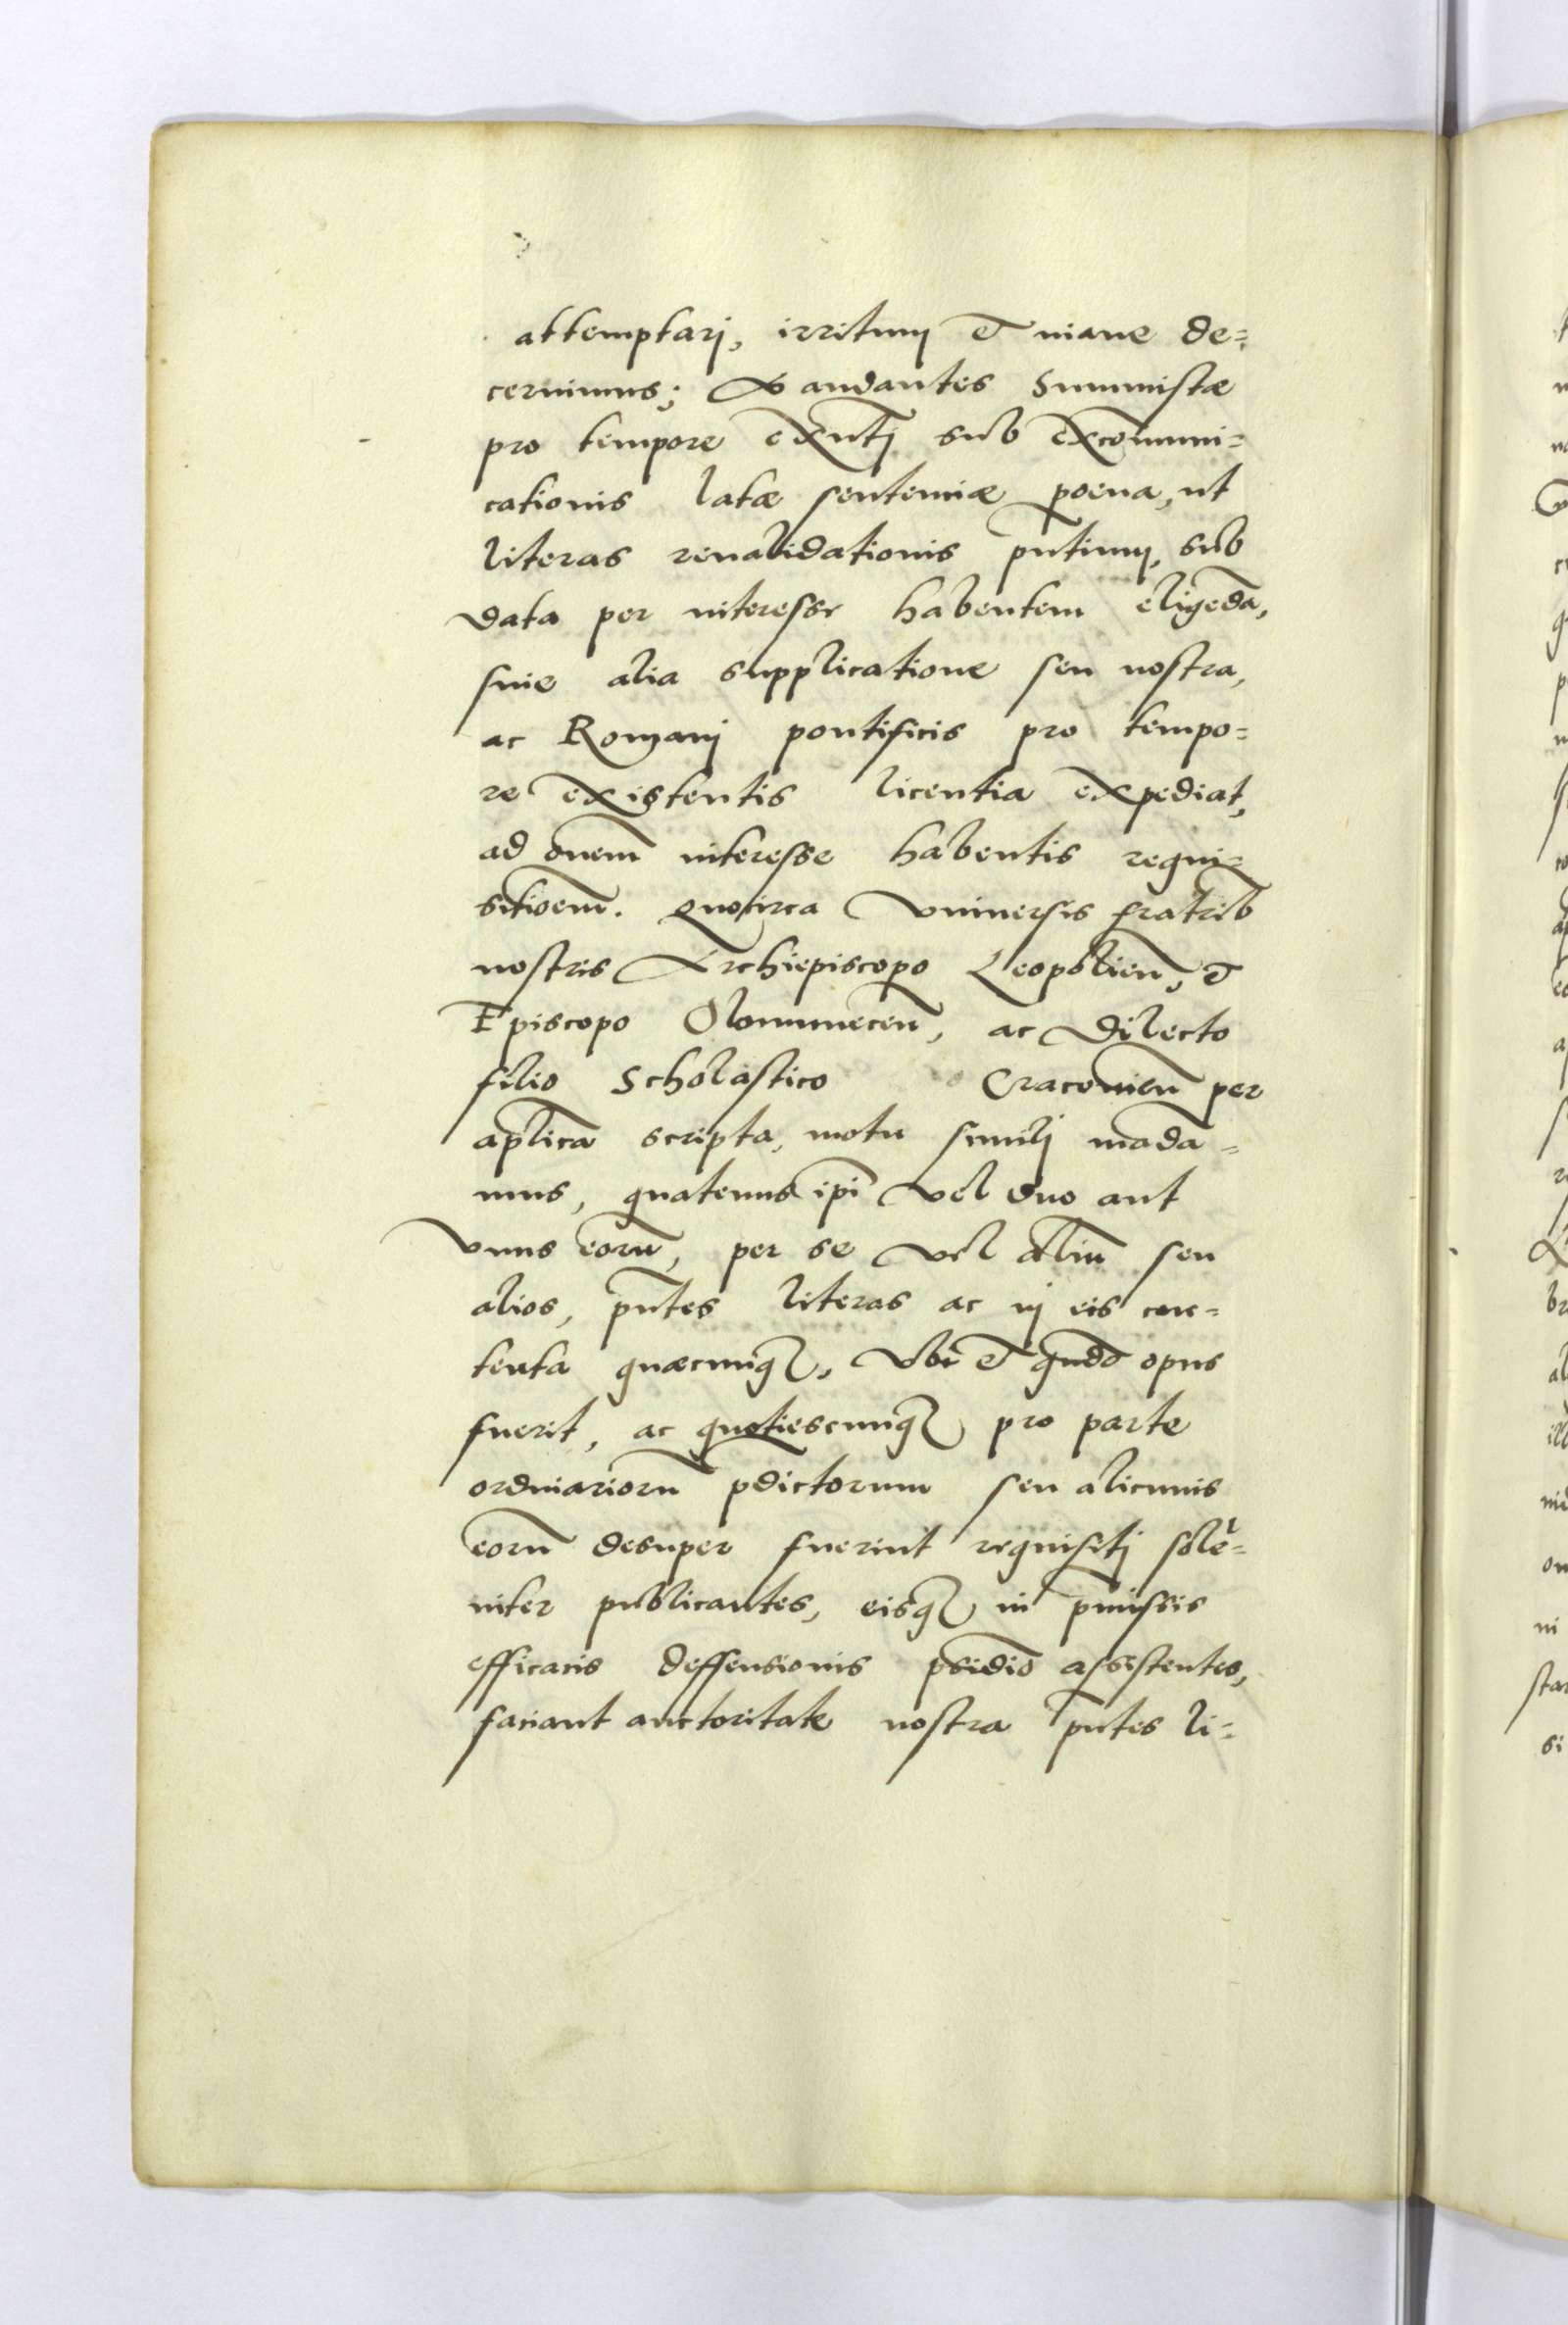 attemptarj, irritum et inane de=
cernimus; Mandantes Summistæ
pro tempore exn̄tj sub excōmuni=
cationis latæ sententiæ poena, ut
literas reualidationis pn̄tium, sub
data per interesse habentem eligēda,
sine alia supplicatione seu nostra,
ac Romanj pontificis pro tempo=
re existentis licentia expediat,
ad om̄em interesse habentis requi=
sitioem̄. Quocirca Vniuersis fratrib
nostris Archiepiscopo Leopolien̄, et
Episcopo Olomucen̄, ac Dilecto
filio Scholastico Cracouien̄ per
aplica scripta, motu similj māda=
mus, quatenus ip̄i vel duo aut
Vnus eorū, per se vel Aliū seu
alios, pn̄tes literas ac in eis con=
tenta quæcunq, Vbi et qn̄do opus
fuerit, ac quotiescunq pro parte
ordinariorū pdictorum seu alicuius
eorū desuper fuerint requisitj solē=
niter publicantes, eisq in pmissis
efficacis deffensionis psidio assistentes,
faciant auctoritate nostra pn̄tes li=